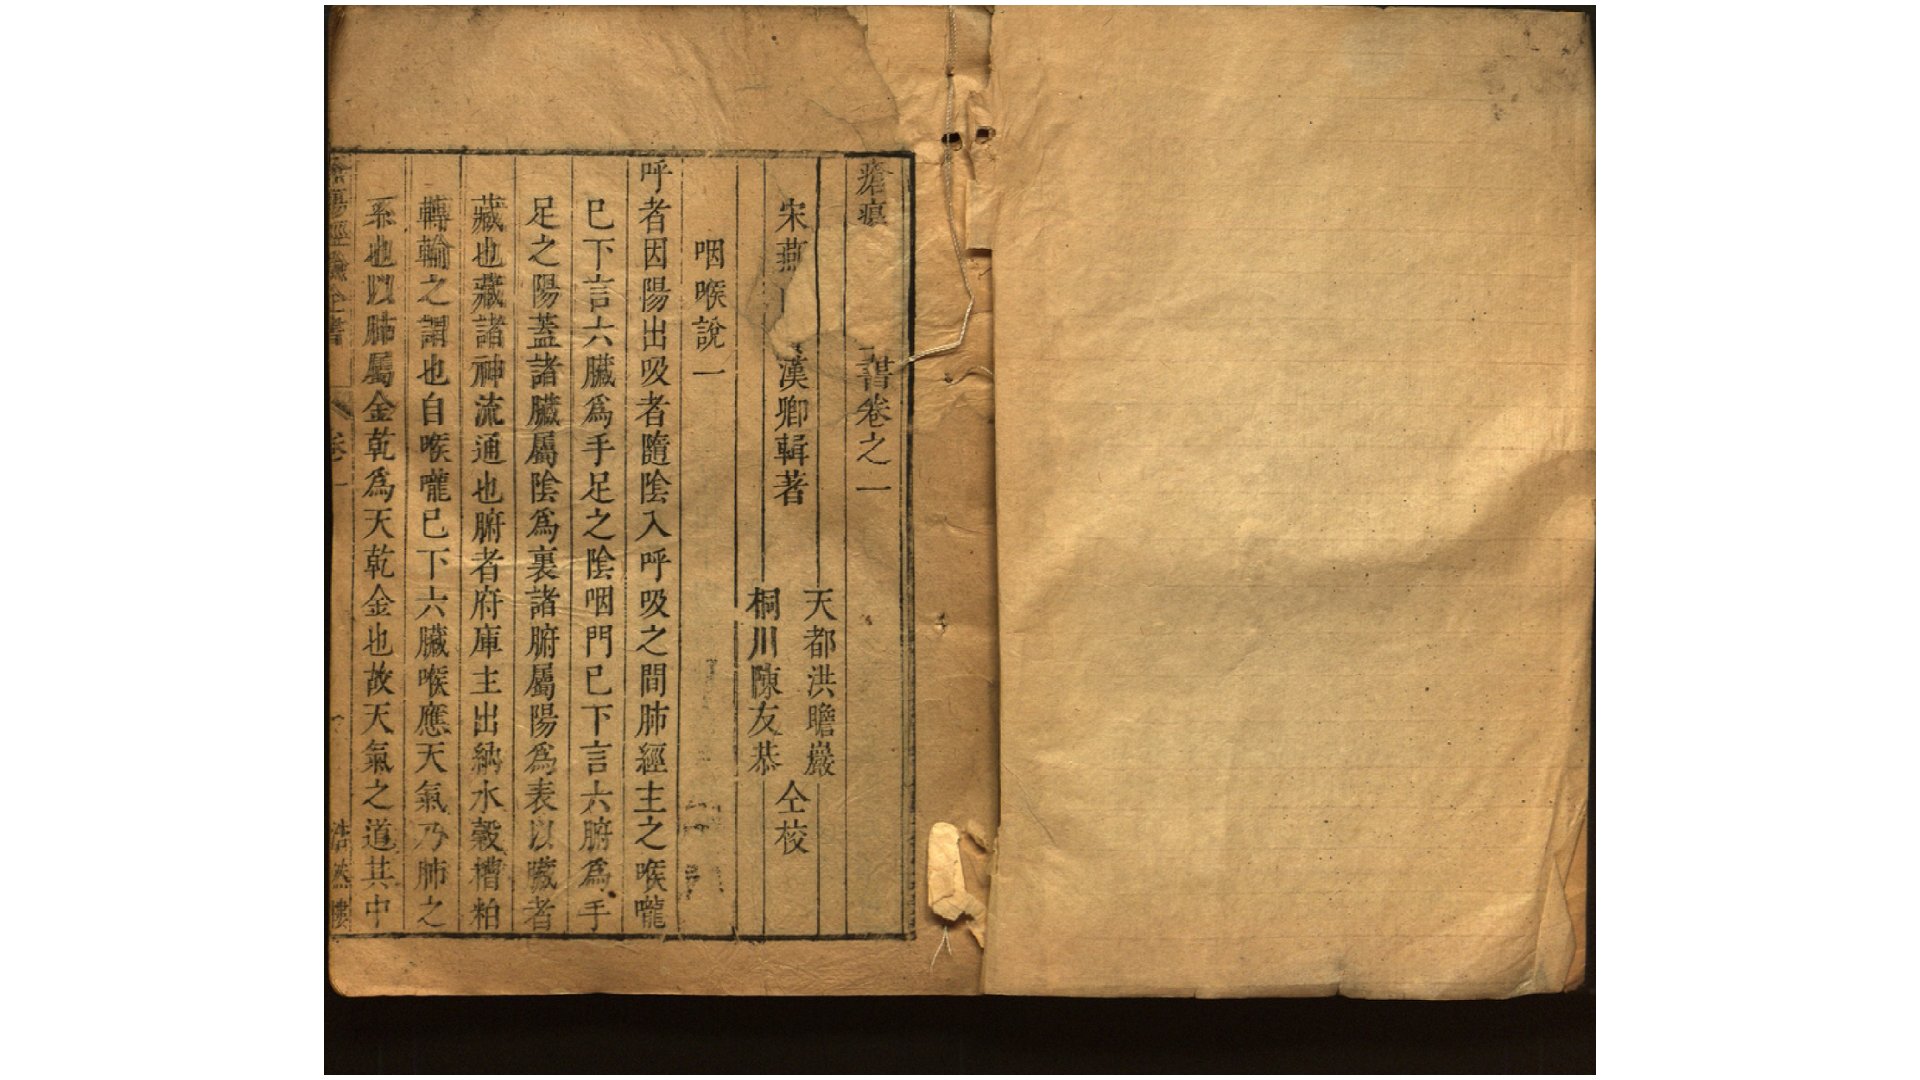 瘡瘍
書卷之一
宋燕
漢卿輯著
天都洪瞻巖
桐川陳友恭
仝校
咽喉說一
呼者因陽出吸者隨陰入呼吸之間肺經主之喉嚨
已下言六臟爲手足之陰咽門已下言六腑爲手
足之陽蓋諸臟屬陰爲裏諸腑屬陽爲表以臟者
藏也藏諸神流通也腑者府庫主出納水穀糟粕
轉輸之謂也自喉嚨已下六臟喉應天氣乃肺之
系也以肺屬金乾爲天乾金也故天氣之道其中
瘍經 全書
卷一
浩然樓